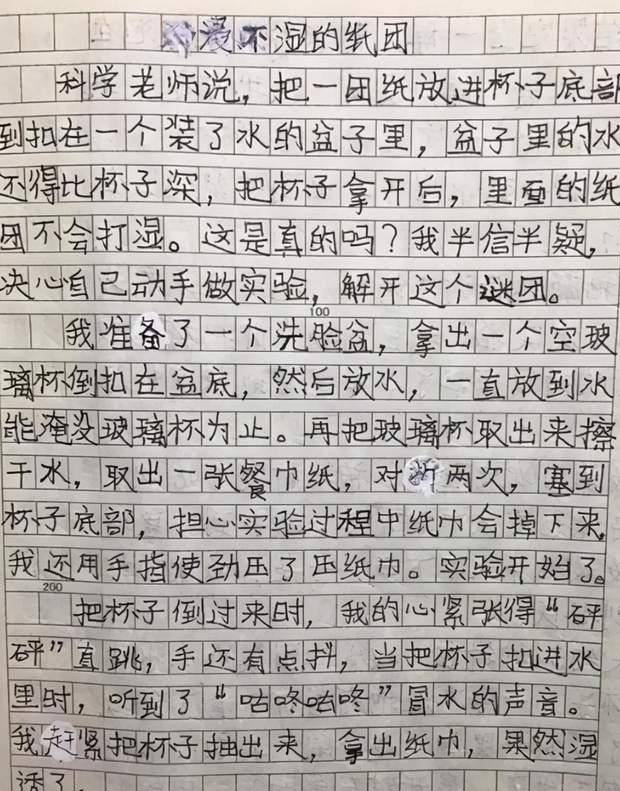 浸不湿的纸团
科学老师说，把一团纸放进杯子底部
到扣在一个装了水的盆子里，盆子里的水
还得比杯子深，把杯子拿开后，里面的纸
团不会打湿。这是真的吗？我半信半疑，
决心自己动手做实验，解开这个谜团。
100
我准备了一个洗脸盆，拿出一个空玻
璃杯倒扣在盆底，然后放水，一直放到水
能淹没玻璃杯为止。再把玻璃杯取出来擦
干水，取出一张餐巾纸，对折两次，塞到
杯子底部，担心实验过程中纸巾会掉下来，
我还用手指使劲压了压纸巾。实验开始了。
200
把杯子倒过来时，我的心紧张得“砰
砰”直跳，手还有点抖，当把杯子扣进水
里时，听到了“咕咚咕咚”冒水的声音。
我赶紧把杯子抽出来，拿出纸巾，果然湿
透了。